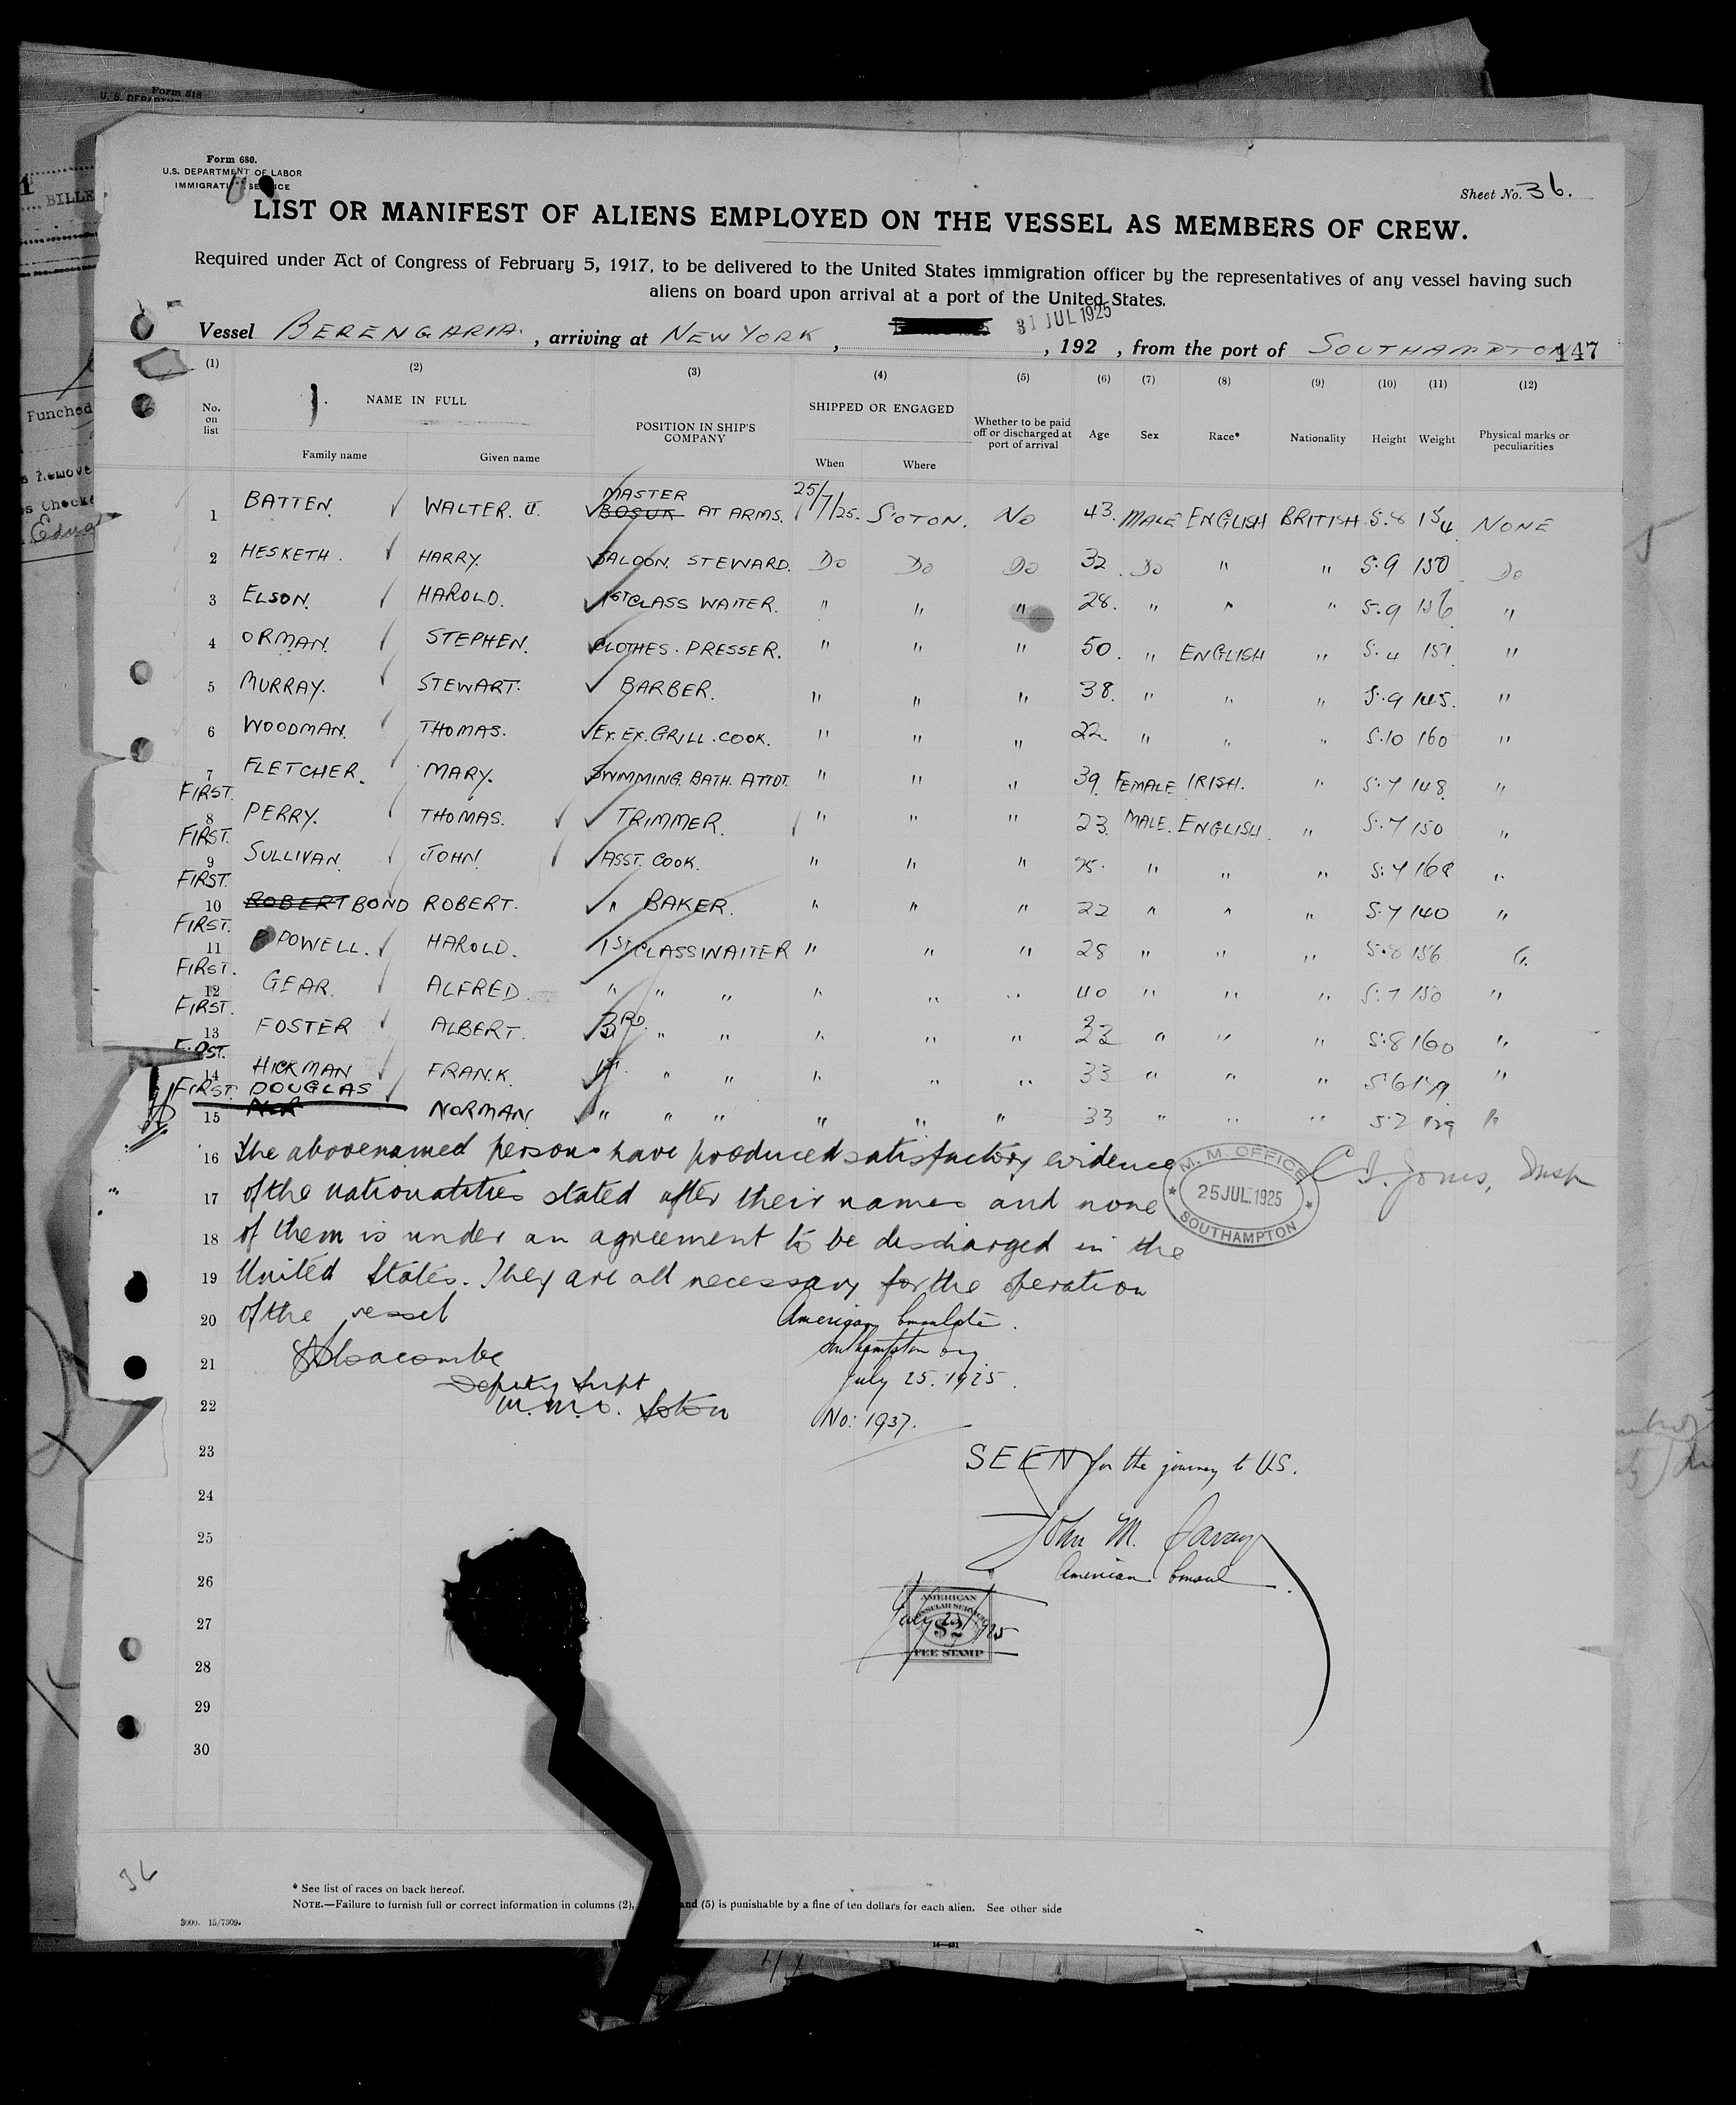 Form 618
U. S. DEPARTM
BILLE
Punched
Remove
Checke
Form 680.
U.S. DEPARTMENT OF LABOR
IMMIGRATION SERVICE
Sheet No. 36.
LIST OR MANIFEST OF ALIENS EMPLOYED ON THE VESSEL AS MEMBERS OF CREW.
Required under Act of Congress of February 5, 1917, to be delivered to the United States immigration officer by the representatives of any vessel having such
aliens on board upon arrival at a port of the United States.
31 JUL 1925
Vessel BERENGARIA, arriving at NEW YORK, , 192 , from the port of SOUTHAMPTON
147
(1) (2) (3) (4) (5) (6) (7) (8) (9) (10) (11) (12)
No. on list NAME IN FULL POSITION IN SHIP'S COMPANY SHIPPED OR ENGAGED Whether to be paid off or discharged at port of arrival Age Sex Race* Nationality Height Weight Physical marks or peculiarities
Family name Given name When Where
1 BATTEN. WALTER. MASTER BOSUN AT ARMS. 25/7/25. S'OTON. NO 43. MALE ENGLISH BRITISH 5.8 154 NONE
2 HESKETH. HARRY. SALOON. STEWARD. Do Do Do 32. Do " " 5.9 150 Do
3 ELSON. HAROLD. 1ST CLASS WAITER. " " " 28. " " " 5.9 156 "
4 ORMAN. STEPHEN. CLOTHES. PRESSER. " " " 50. " ENGLISH " 5.4 151 "
5 MURRAY. STEWART. BARBER. " " " 38. " " " 5.9 145. "
6 WOODMAN. THOMAS. Ex. Ex. GRILL. COOK. " " " 22. " " " 5.10 160 "
7 FLETCHER. MARY. SWIMMING. BATH. ATTDT. " " " 39. FEMALE IRISH. " 5.7 148 "
FIRST.
8 PERRY. THOMAS. TRIMMER. " " " 23. MALE. ENGLISH. " 5.7 150 "
FIRST.
9 SULLIVAN. JOHN. ASST. COOK. " " " " " " 5.7 168 "
FIRST.
10 ROBERT BOND ROBERT. " BAKER. " " " 22 " " " 5.7 140 "
FIRST.
11 POWELL. HAROLD. 1ST CLASS WAITER " " " 28 " " " 5.8 156 "
FIRST.
12 GEAR. ALFRED. " " " " " " 40 " " " 5.7 150 "
FIRST.
13 FOSTER ALBERT. 3RD. " " " " " " " " 5.8 160 "
FIRST.
14 HICKMAN FRANK. 1ST. " " " " " 33 " " " 5.6 139. "
FIRST. DOUGLAS
15 NOR NORMAN. " " " " " " 33 " " " 5.7 129 "
16 The abovenamed persons have produced satisfactory evidence
17 of the nationalities stated after their names and none
18 of them is under an agreement to be discharged in the
19 United States. They are all necessary for the operation
20 of the vessel
M. M. OFFICE
25 JUL. 1925
SOUTHAMPTON
Jones, Insp
American Consulate.
21 Southampton Eng
Deputy Supt
July 25. 1925.
22 M.M.O. Soton
No: 1937.
23 SEEN for the journey to U.S.
24
25 John M. Savage
26 American Consul
27 AMERICAN CONSULAR SERVICE
$2
FEE STAMP
July 25/1925
28
29
30
36
* See list of races on back hereof.
NOTE.—Failure to furnish full or correct information in columns (2), and (5) is punishable by a fine of ten dollars for each alien. See other side
3000. 15/7309.